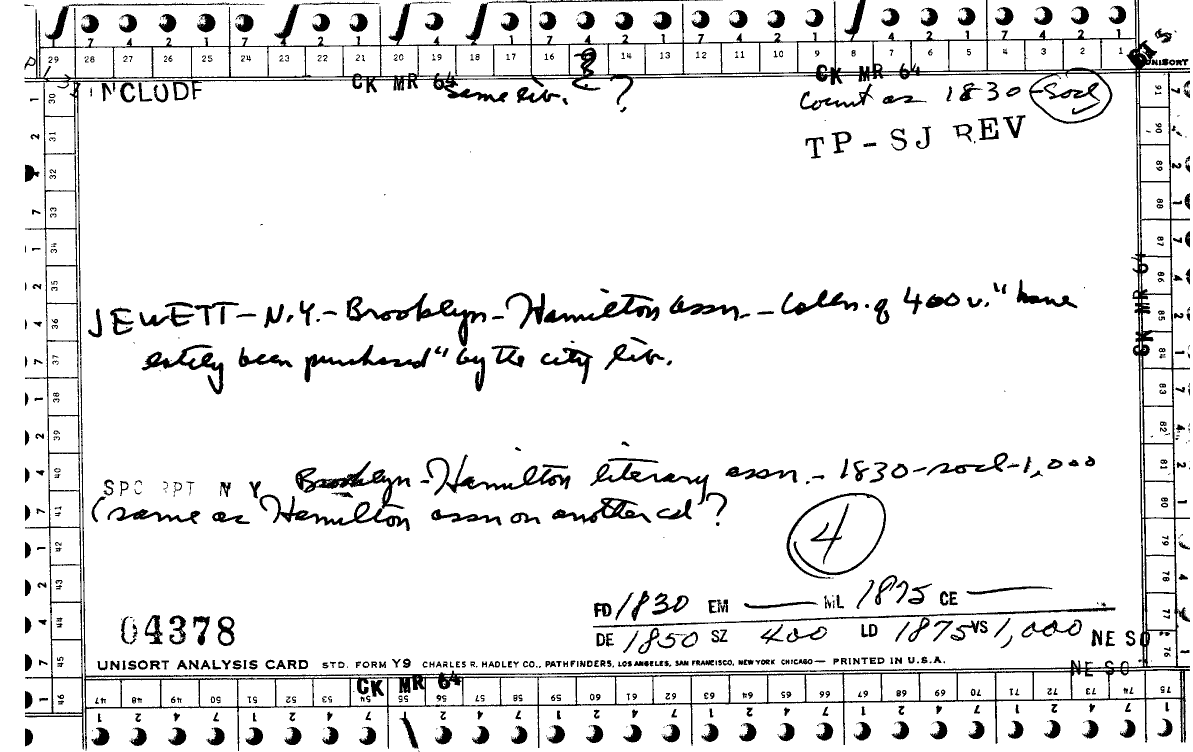 7 4 2 1 7 4 2 1 7 4 2 1 7 4 2 1 7 4 2 1 7 4 2 1 7 4 2 1
29 28 27 26 25 24 23 22 21 20 19 18 17 16 15 14 13 12 11 10 9 8 7 6 5 4 3 2 1
UNISORT
CK MR 64
CK MR 64
INCLUDE
same lib. ?
Count as 1830 - socl
TP - SJ REV
CK MR 64
JEWETT - N.Y. - Brooklyn - Hamilton assn. - Colln. of 400 v. "have
lately been purchased" by the city lib.
SPC RPT N Y Brooklyn - Hamilton literary assn. - 1830 - socl - 1,000
(same as Hamilton assn on another cd?
4
FD 1830 EM — ML 1875 CE —
DE 1850 SZ 400 LD 1875 VS 1,000 NE SO
04378
NE SO
UNISORT ANALYSIS CARD STD. FORM Y9 CHARLES R. HADLEY CO., PATHFINDERS, LOS ANGELES, SAN FRANCISCO, NEW YORK CHICAGO — PRINTED IN U.S.A.
CK MR 64
47 48 49 50 51 52 53 54 55 56 57 58 59 60 61 62 63 64 65 66 67 68 69 70 71 72 73 74 75
1 2 4 7 1 2 4 7 1 2 4 7 1 2 4 7 1 2 4 7 1 2 4 7 1 2 4 7